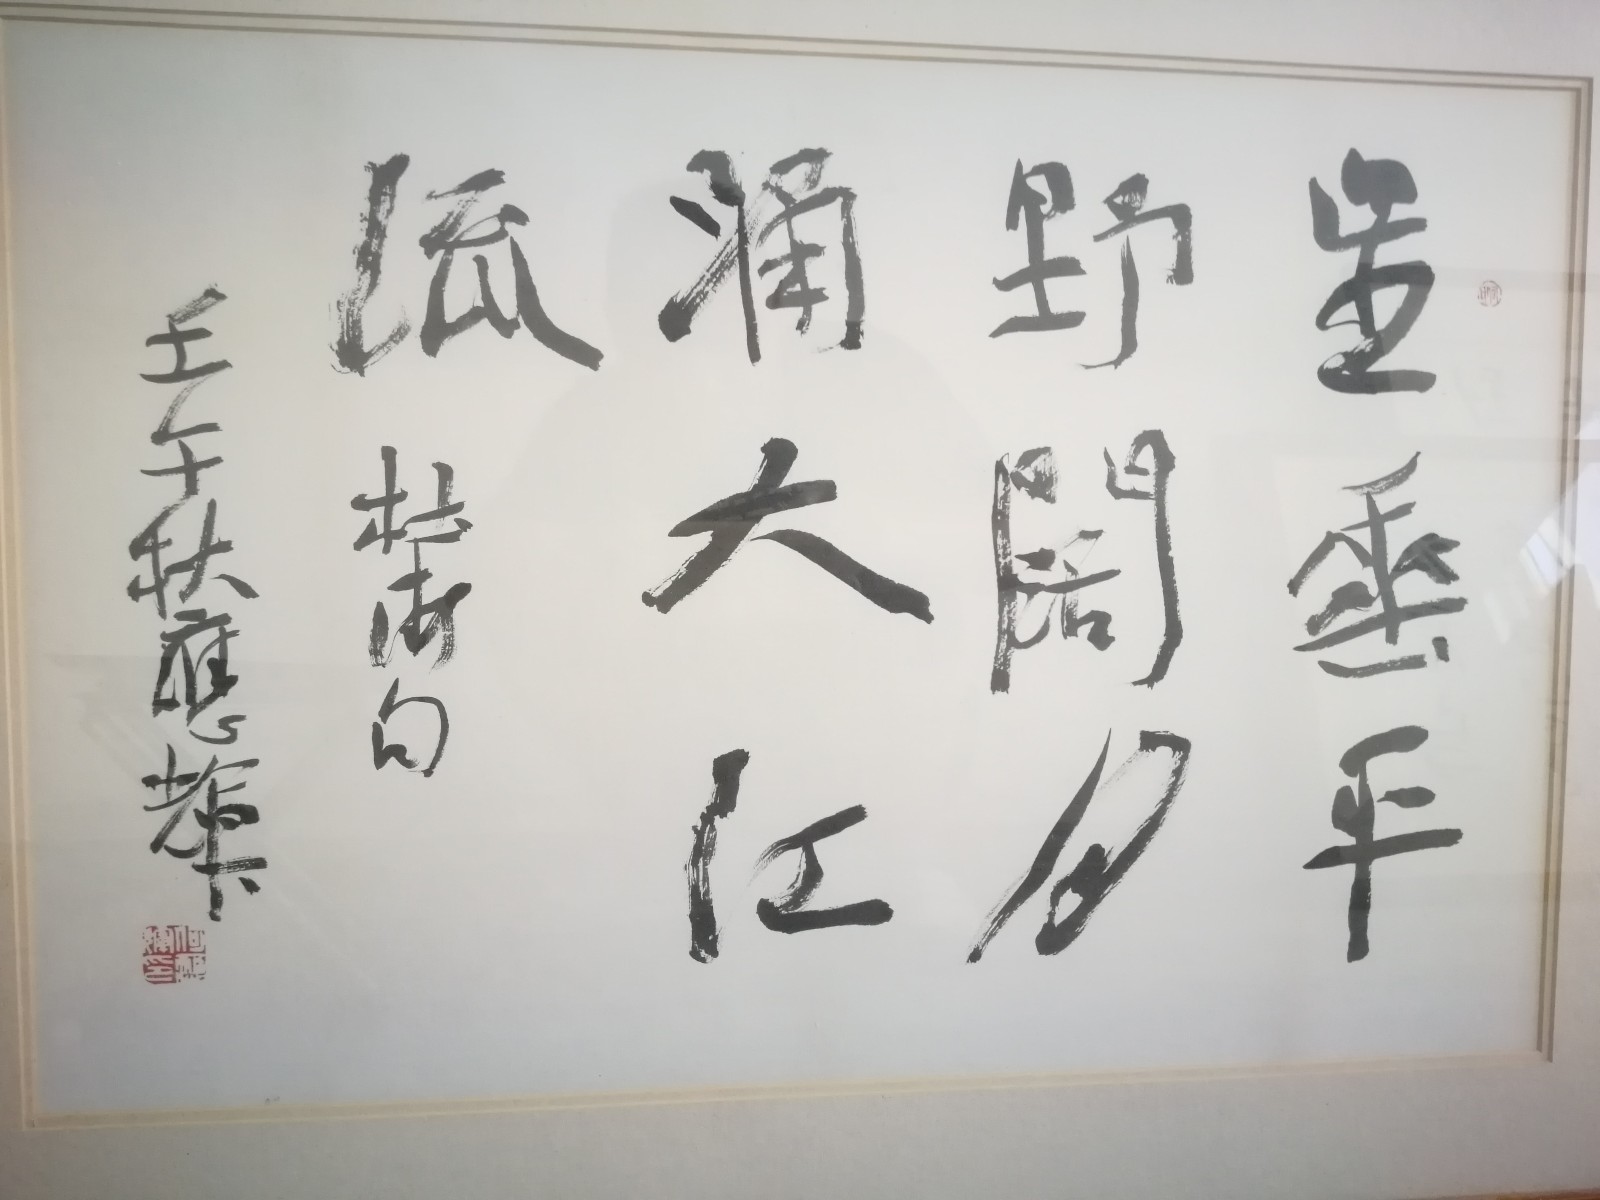 星垂平
野闊月
涌大江
流 杜甫句
壬午秋應輝